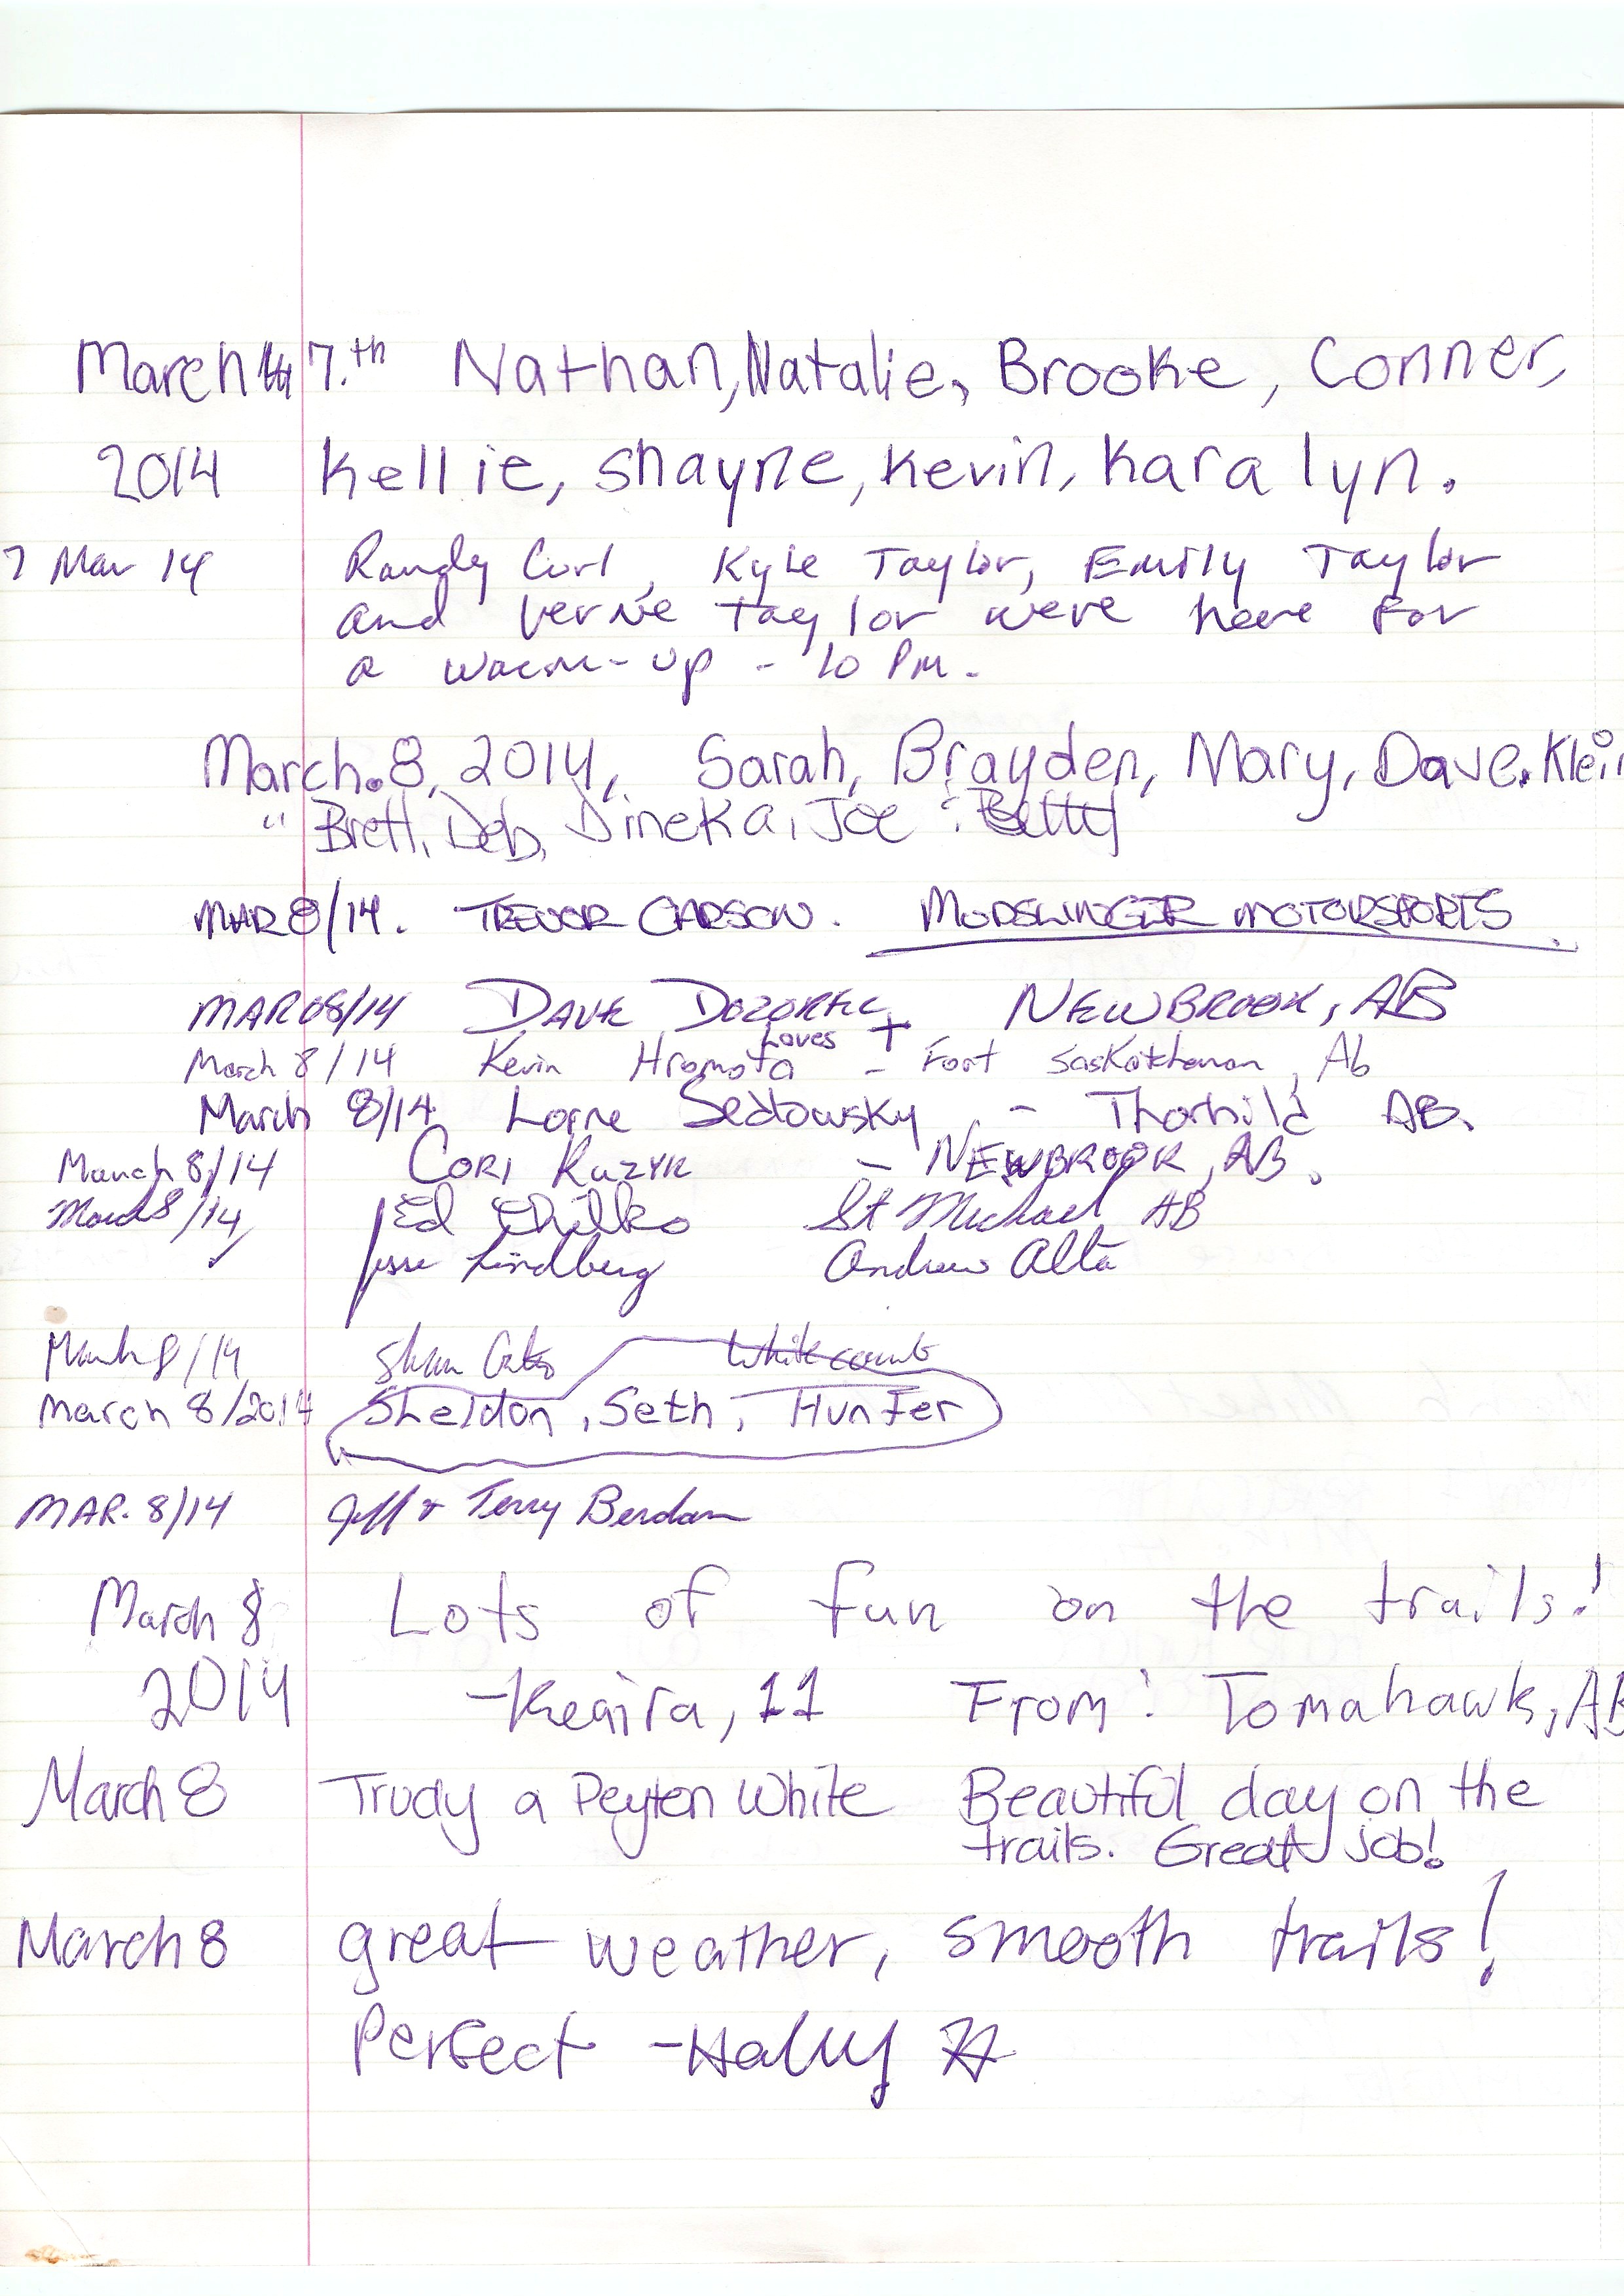 March 7.th Nathan, Natalie, Brooke, Conner,
2014 Kellie, Shayne, Kevin, Karalyn.
7 Mar 14 Randy Curl, Kyle Taylor, Emily Taylor
and Verne Taylor were here for
a warm-up - 10 PM.
March.8, 2014, Sarah, Brayden, Mary, Dave. Klein
" Brett, Deb, Dineka, Joe : Betty
MAR 8/14. TREVOR CARSON. MUDSLINGER MOTORSPORTS
MAR 08/14 DAVE NEWBROOK, AB
Loves +
March 8/14 Kevin - Fort Saskatchewan, Ab
March 8/14 Lorne - Thorhild AB.
March 8/14 CORI KUZYK - NEWBROOK, AB.
March 8/14 Ed St Michael AB
Jesse Lindberg Andrew Alta
March 8/14 Whitecomb
March 8/2014 Sheldon, Seth, Hunter
MAR. 8/14 Jeff & Terry Berdan
March 8 Lots of fun on the trails!
2014 -Keaira, 11 From: Tomahawk, AB
March 8 Trudy a Peyten White Beautiful day on the
trails. Great job!
March 8 great weather, smooth trails!
Perfect -Hally